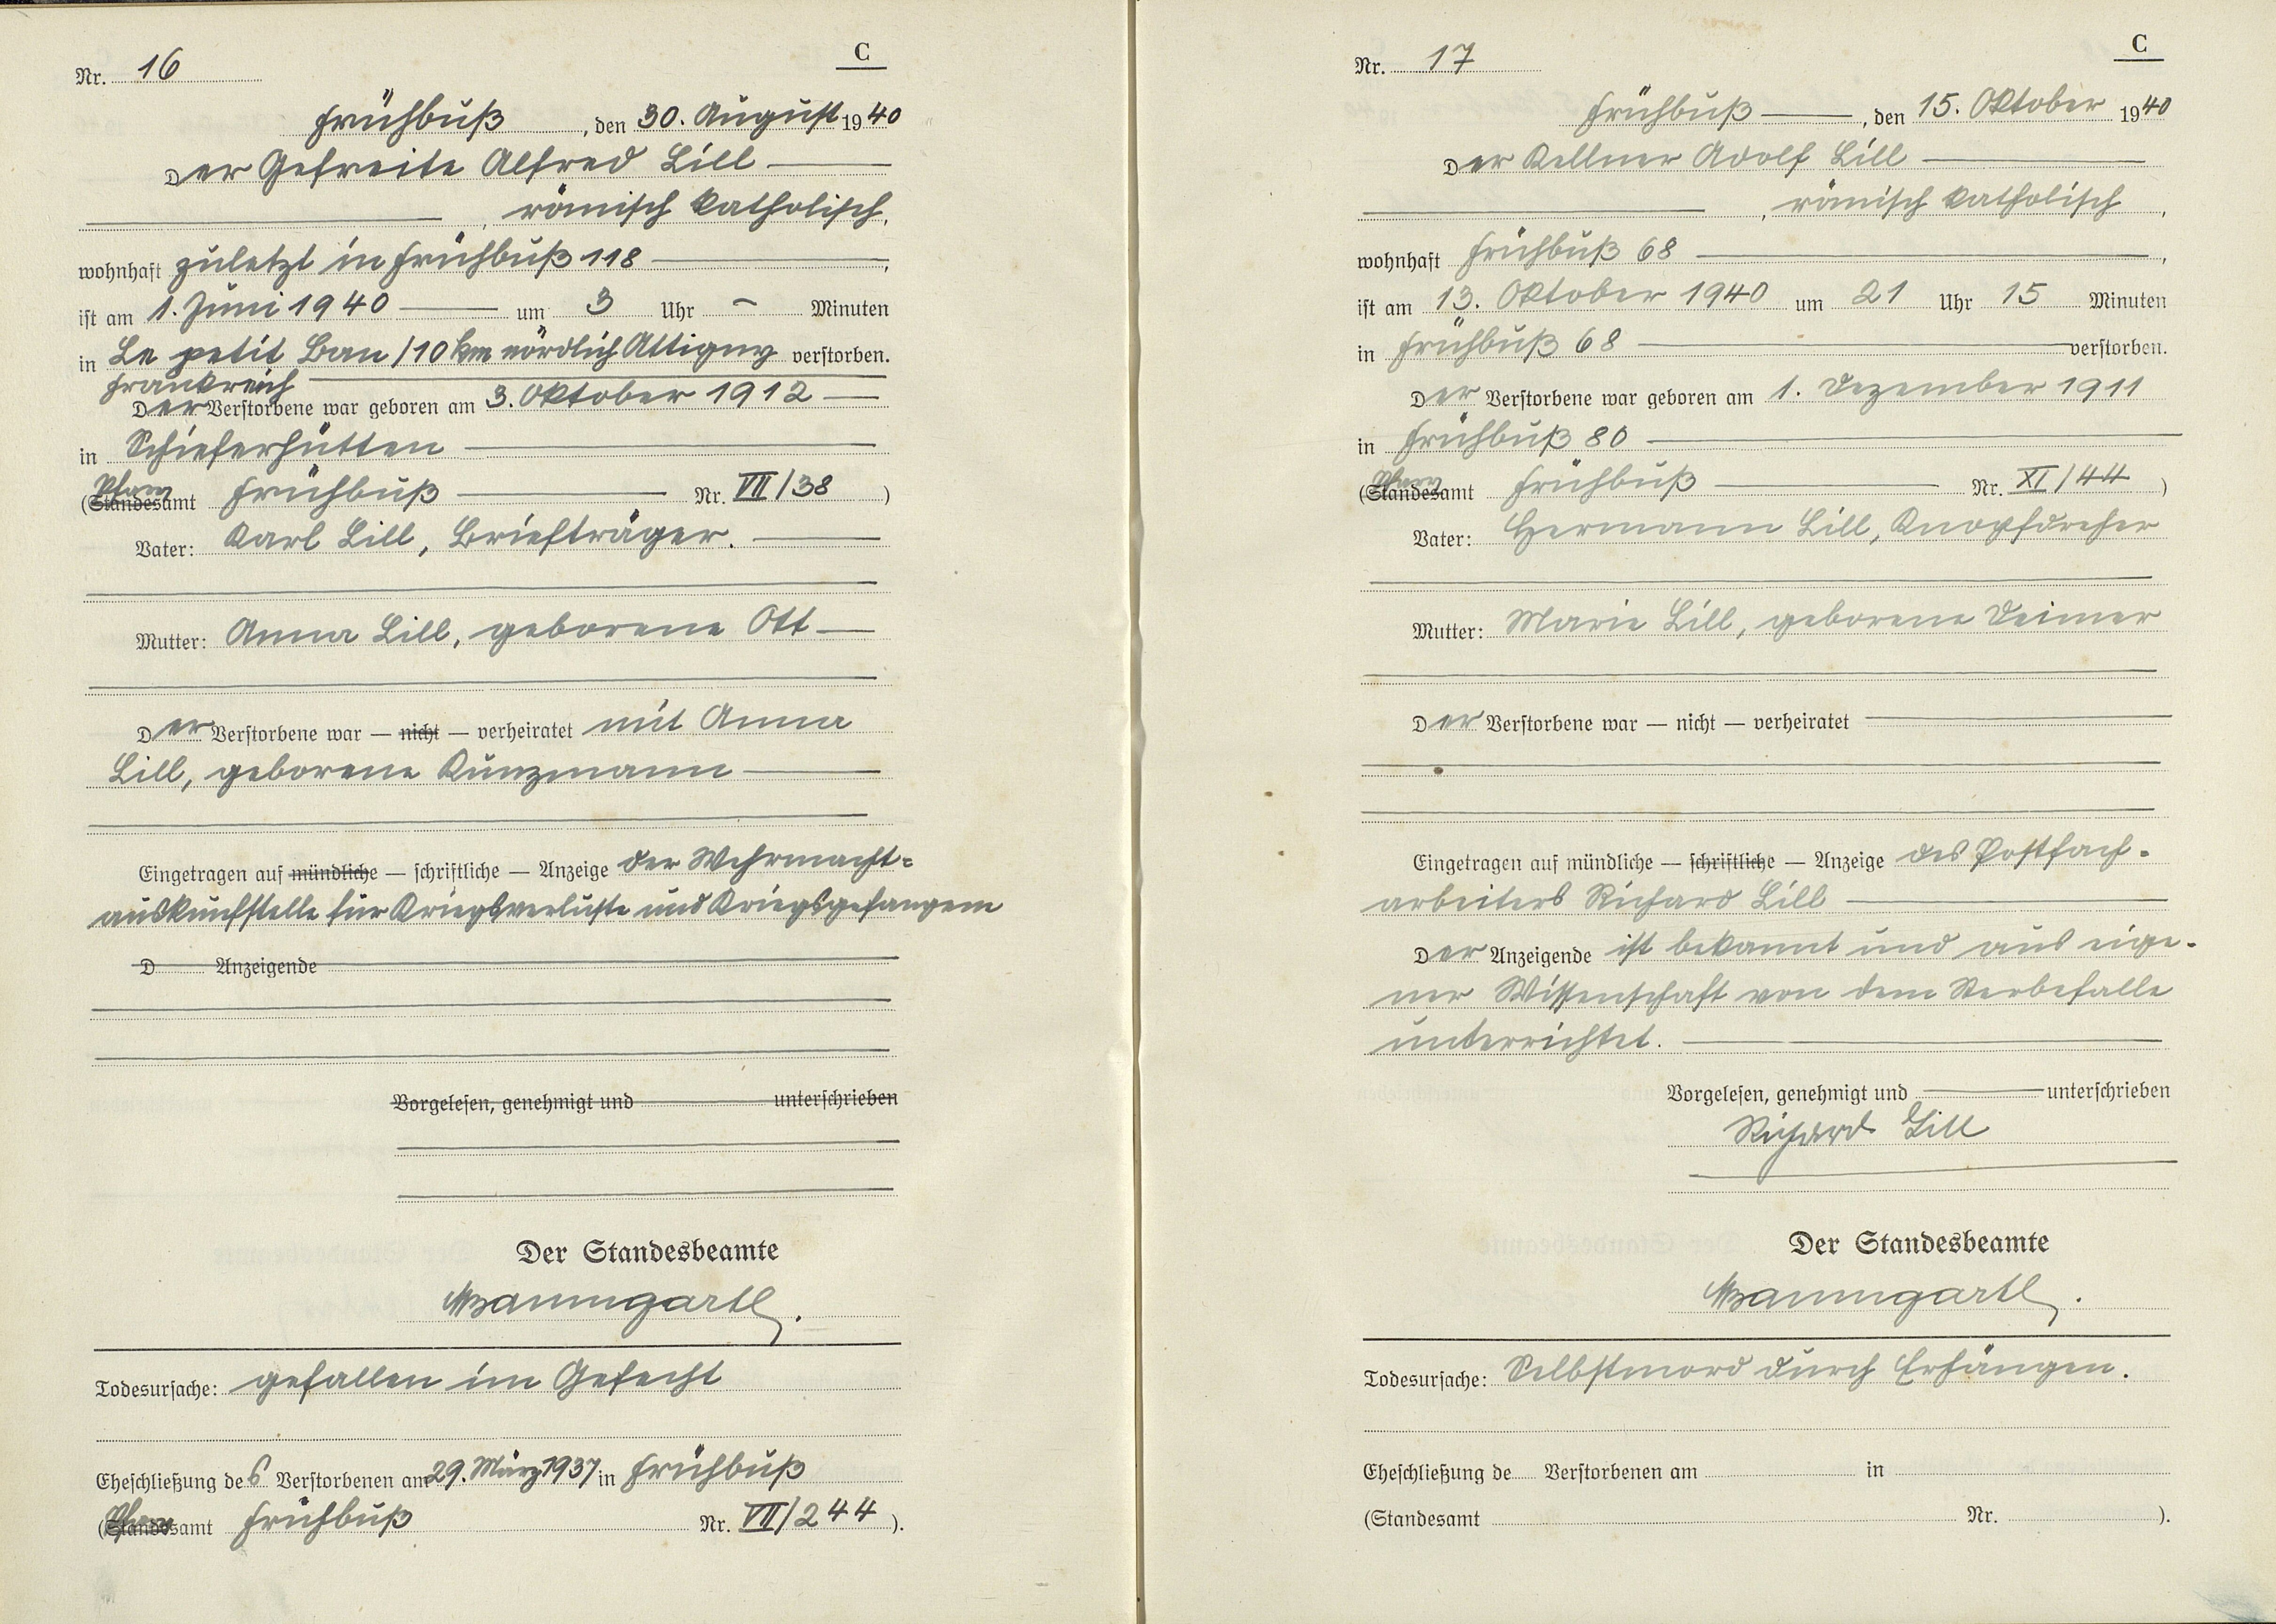 C
Nr. 16
Frühbuß, den 30. August 1940
Der Gefreite Alfred Lill
, römisch katholisch,
wohnhaft zuletzt in Frühbuß 118,
ist am 1. Juni 1940 um 3 Uhr – Minuten
in Le petit Ban / 10 km nördlich Attigny verstorben.
Frankreich
Der Verstorbene war geboren am 3. Oktober 1912
in Schieferhütten
(Pfarramt Frühbuß Nr. VII/38)
Vater: Karl Lill, Briefträger.
Mutter: Anna Lill, geborene Ott
Der Verstorbene war — nicht — verheiratet mit Anna
Lill, geborene Kunzmann
Eingetragen auf mündliche — schriftliche — Anzeige der Wehrmacht=
auskunfstelle für Kriegsverluste und Kriegsgefangene
D Anzeigende
Vorgelesen, genehmigt und unterschrieben
Der Standesbeamte
Baumgartl.
Todesursache: gefallen im Gefecht
Eheschließung des Verstorbenen am 29. März 1937 in Frühbuß
(Pfarramt Frühbuß Nr. VII/244).
C
Nr. 17
Frühbuß, den 15. Oktober 1940
Der Kellner Adolf Lill
, römisch katholisch,
wohnhaft Frühbuß 68,
ist am 13. Oktober 1940 um 21 Uhr 15 Minuten
in Frühbuß 68 verstorben.
Der Verstorbene war geboren am 1. Dezember 1911
in Frühbuß 80
(Pfarramt Frühbuß Nr. XI/44)
Vater: Hermann Lill, Knopfdreher
Mutter: Marie Lill, geborene Deimer
Der Verstorbene war — nicht — verheiratet
Eingetragen auf mündliche — schriftliche — Anzeige des Postfach-
arbeiters Richard Lill
Der Anzeigende ist bekannt und aus eige-
ner Wissenschaft von dem Sterbefalle
unterrichtet.
Vorgelesen, genehmigt und unterschrieben
Richard Lill
Der Standesbeamte
Baumgartl.
Todesursache: Selbstmord durch Erhängen.
Eheschließung de Verstorbenen am in
(Standesamt Nr. ).